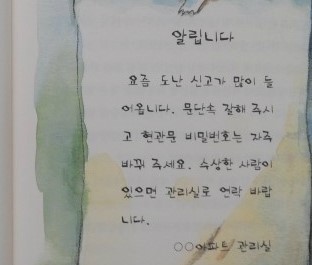 알립니다
요즘 도난 신고가 많이 들
어옵니다. 문단속 잘해 주시
고 현관문 비밀번호는 자주
바꿔 주세요. 수상한 사람이
있으면 관리실로 연락 바랍
니다.
○○아파트 관리실